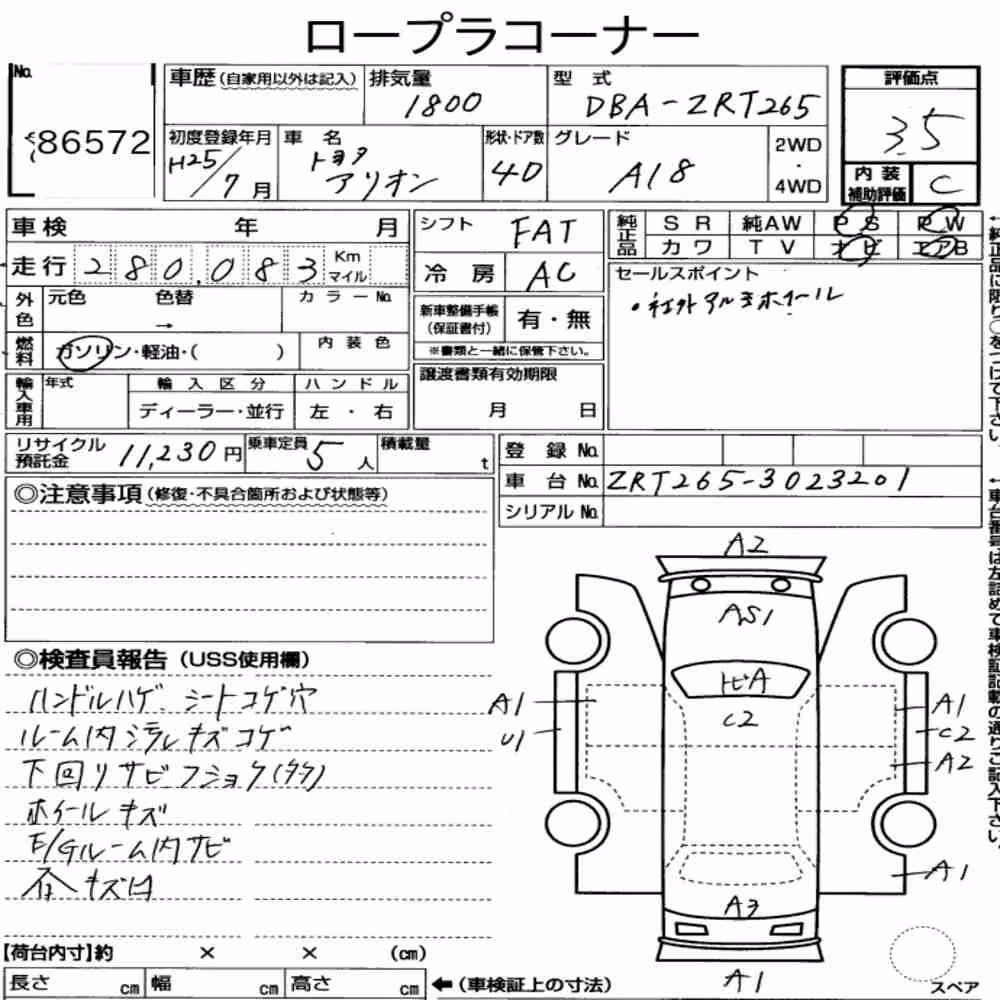 ロープラコーナー
No.
86572
車歴 (自家用以外は記入)
排気量
1800
型式
DBA-ZRT265
評価点
3.5
初度登録年月
H25/7月
車名
トヨタ
アリオン
形状・ドア数
4D
グレード
A18
2WD
・
4WD
内装
補助評価
C
車検 年 月
シフト
FAT
純正品
SR 純AW PS PW
カワ TV ナビ エアB
走行 280,083 Km
マイル
冷房
AC
セールスポイント
・社外アルミホイール
外色
元色 色替 カラーNo.
→
新車整備手帳
(保証書付)
有・無
※書類と一緒に保管下さい。
燃料
ガソリン・軽油・( )
内装色
輸入車用
年式
輸入区分
ハンドル
ディーラー・並行
左・右
譲渡書類有効期限
月 日
リサイクル
預託金
11,230円
乗車定員
5人
積載量
t
登録No.
車台No. ZRT265-3023201
シリアルNo.
◎注意事項 (修復・不具合箇所および状態等)
◎検査員報告 (USS使用欄)
ハンドルハゲ シートコゲ穴
ルーム内汚レキズコゲ
下回リサビフショク(多々)
ホイールキズ
E/Gルーム内サビ
キズ凹
A2
AS1
トビA
C2
A1
U1
A1
C2
A2
A1
A3
A1
スペア
【荷台内寸】約 × × (cm)
長さ cm 幅 cm 高さ cm
← (車検証上の寸法)
←純正品に限り○をつけて下さい。
←車台番号は左詰めて車検証記載の通りご記入下さい。